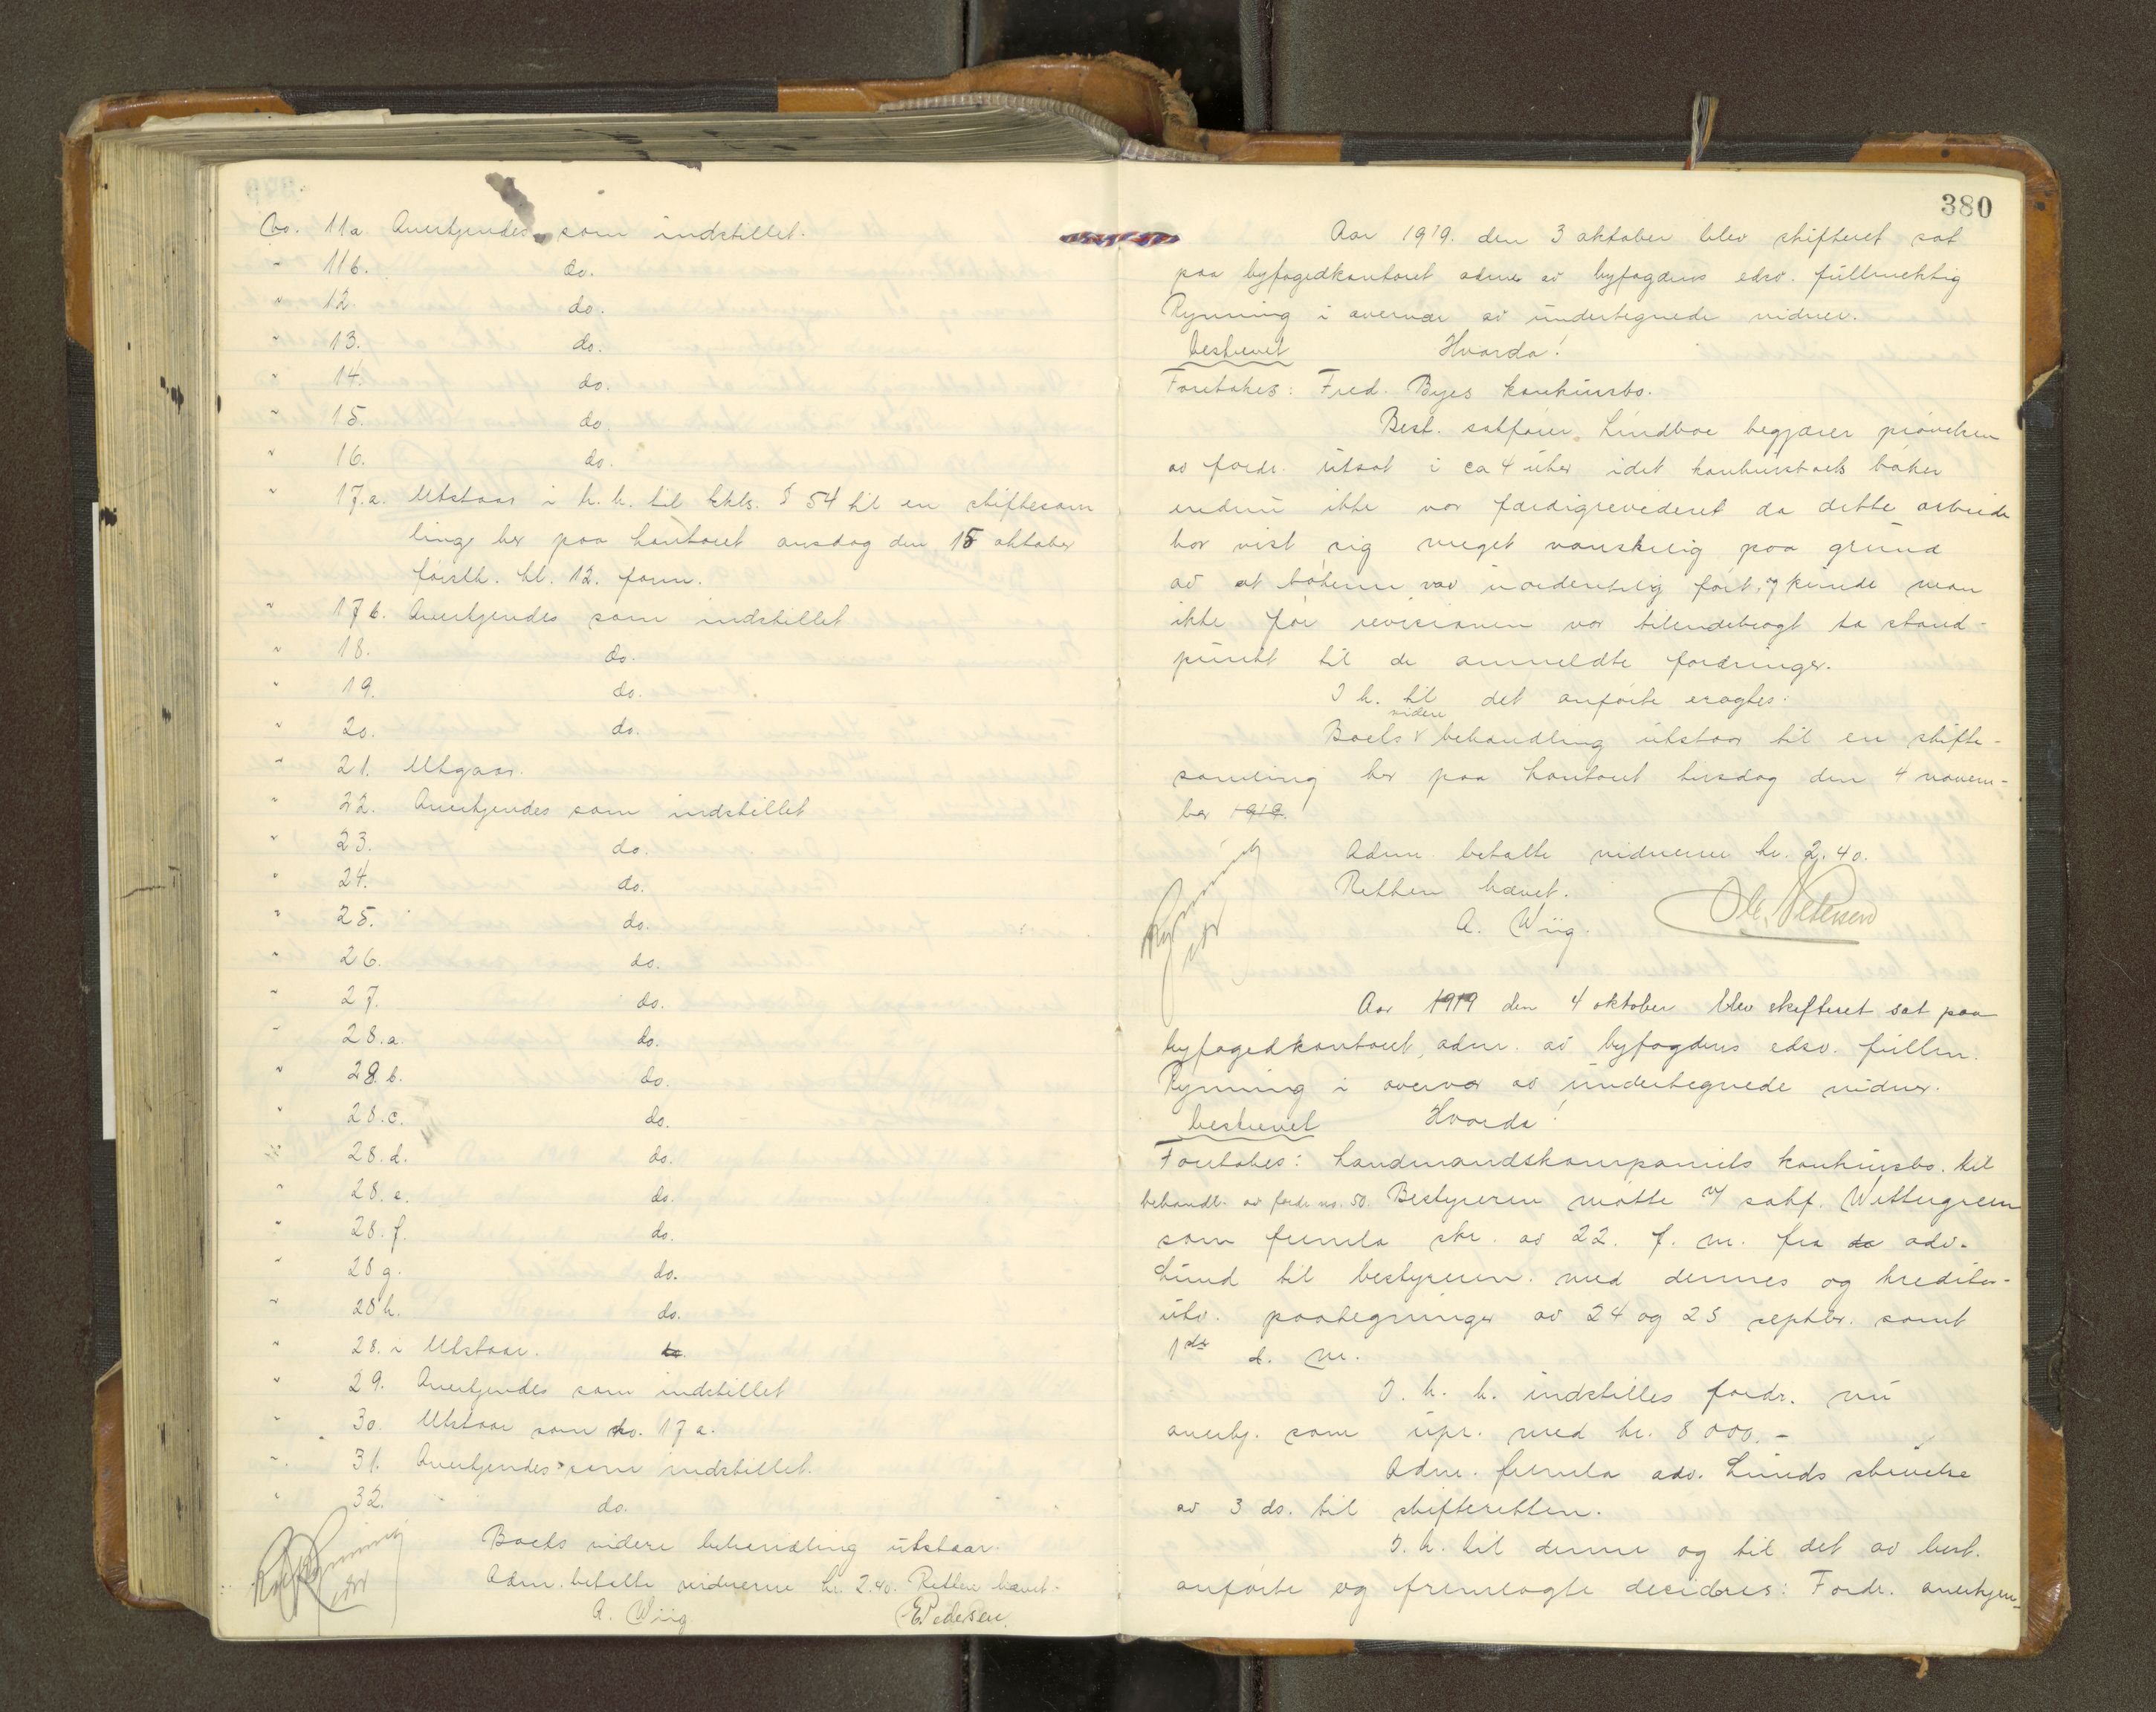 No. 11a. Anerkjendes som indstillet.
" 11b. do.
" 12. do.
" 13. do.
" 14. do.
" 15. do.
" 16. do.
" 17.a. Utstaar i h. h. til kkls. § 54 til en skiftesam
linge her paa kontoret onsdag den 15 oktober
førstk. kl. 12. form.
" 17b. Anerkjendes som indstillet
" 18. do.
" 19. do.
" 20. do.
" 21. Utgaar.
" 22. Anerkjendes som indstillet
" 23. do.
" 24. do.
" 25. do.
" 26. do.
" 27. do.
" 28.a. do.
" 28.b. do.
" 28.c. do.
" 28.d. do.
" 28.e. do.
" 28.f. do.
" 28g. do.
" 28h. do.
" 28.i Utstaar.
" 29. Anerkjendes som indstillet
" 30. Utstaar som no. 17a.
" 31. Anerkjendes som indstillet.
" 32. do.
Boets videre behandling utstaar.
Adm. betalte vidnerne kr. 2.40. Retten hævet.
Rynning
A. Wiig E. Pedersen.
380
Aar 1919. den 3 oktober blev skifteret sat
paa byfogedkontoret adm. av byfogdens edsv. fuldmektig
Rynning i overvær av undertegnede vidner.
beskrevet Hvorda!
Foretokes: Fred. Byes konkursbo.
Best. sakfører Lindboe begjærer prøvelsen
av fordr. utsat i ca 4 uker idet konkursboets bøker
endnu ikke var færdigrevideret da dette arbeide
har vist sig meget vanskelig paa grund
av at bøkerne var uordentelig ført, og kunde man
ikke før revisionen var tilendebragt ta stand-
punkt til de anmeldte fordringer.
I h. til det anførte eragtes:
videre
Boets behandling utstaar til en skifte-
samling her paa kontoret tirsdag den 4 novem-
ber 1919.
Adm. betalte vidnerne kr. 2.40.
Retten hævet.
Rynning
A. Wiig. Ole Petersen
Aar 1919 den 4 oktober blev skifteret sat paa
byfogedkontoret, adm. av byfogdens edsv. fullm.
Rynning i overvær av undertegnede vidner.
beskrevet Hvorda!
Foretokes: Landmandskompaniets konkursbo. til
behandl. av fordr. no. 50. Bestyreren møtte v/ sakf. Wettergreen
som fremla skr. av 22. f. m. fra adv.
Lund til bestyreren. med dennes og kreditor-
utv. paategninger av 24 og 25 septbr. samt
1ste d. m.
I. h. h. indstilles fordr. nu
anerkj. som upr. med kr. 8000.-
Adm. fremla adv. Lunds skrivelse
av 3 ds. til skifteretten.
I. h. til denne og til det av best.
anførte og fremlagte decideres: Fordr. anerkjen-